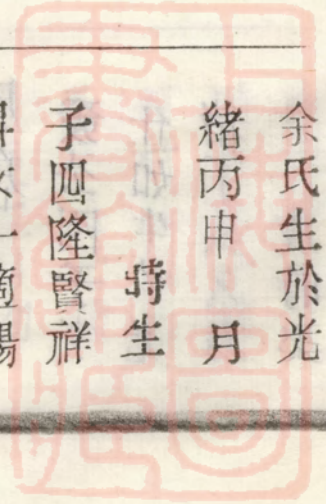 余氏生於光
緒丙申 月
時生
子四隆賢祥
女一適楊